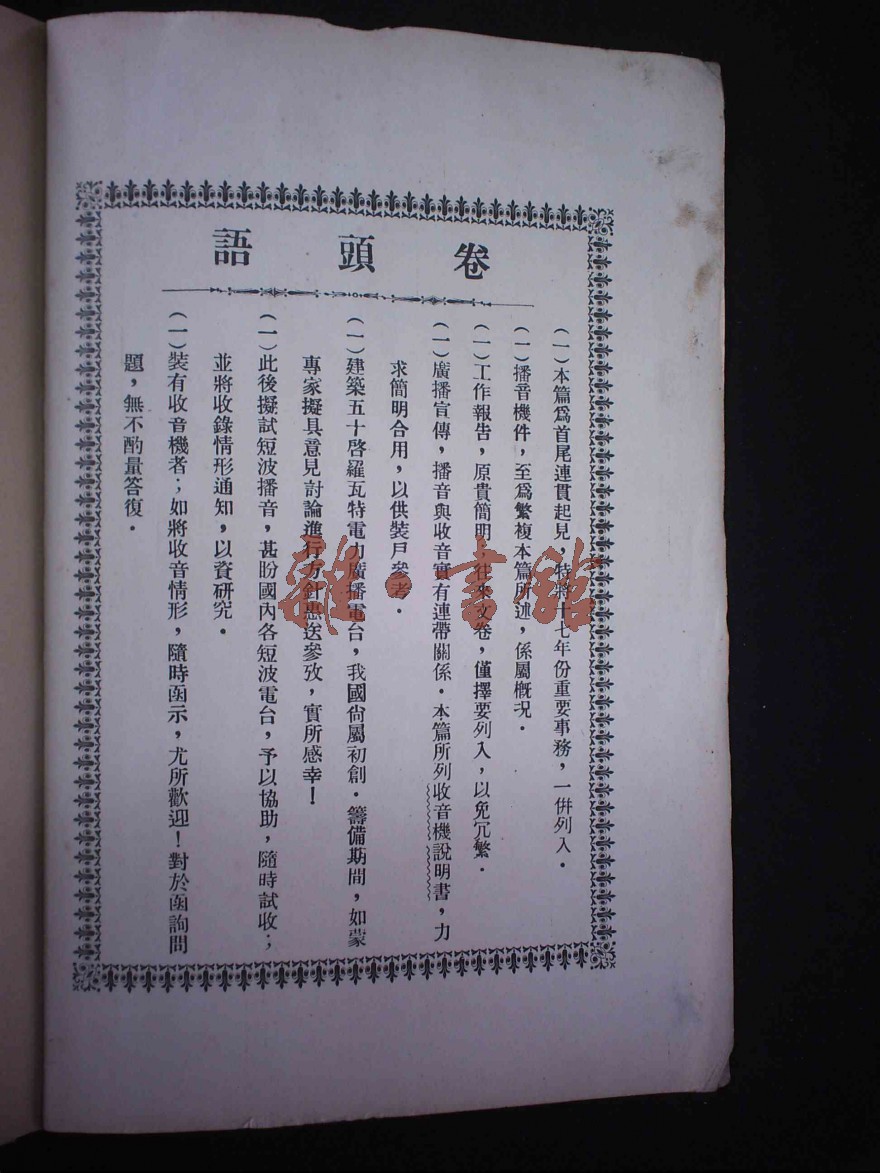 卷頭語
（一）本篇爲首尾連貫起見，特將十七年份重要事務，一併列入．
（一）播音機件，至爲繁複本篇所述，係屬概況．
（一）工作報告，原貴簡明，往來文卷，僅擇要列入，以免冗繁．
（一）廣播宣傳，播音與收音實有連帶關係．本篇所列收音機說明書，力
求簡明合用，以供裝戶參考．
（一）建築五十啓羅瓦特電力廣播電台，我國尙屬初創．籌備期間，如蒙
專家擬具意見討論進行方針惠送參攷，實所感幸！
（一）此後擬試短波播音，甚盼國內各短波電台，予以協助，隨時試收；
並將收錄情形通知，以資硏究．
（一）裝有收音機者；如將收音情形，隨時函示，尤所歡迎！對於函詢問
題，無不酌量答復．
雜·書館